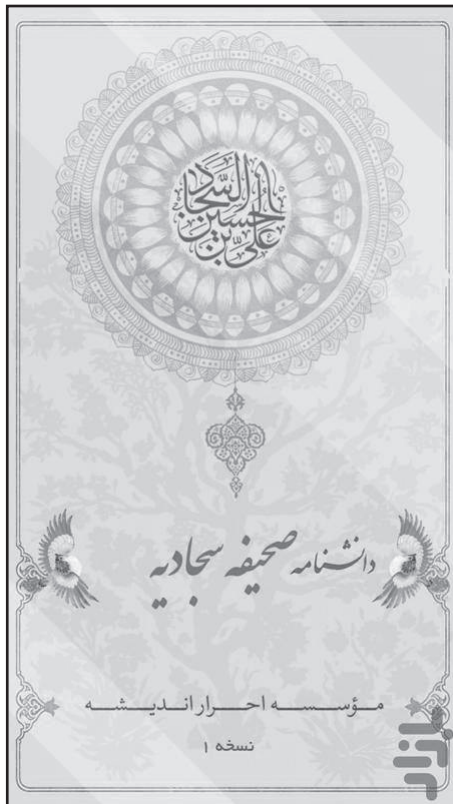 علی بن الحسین السجاد
دانشنامه صحیفه سجادیه
مؤسسه احرار اندیشه
نسخه ۱
بازار